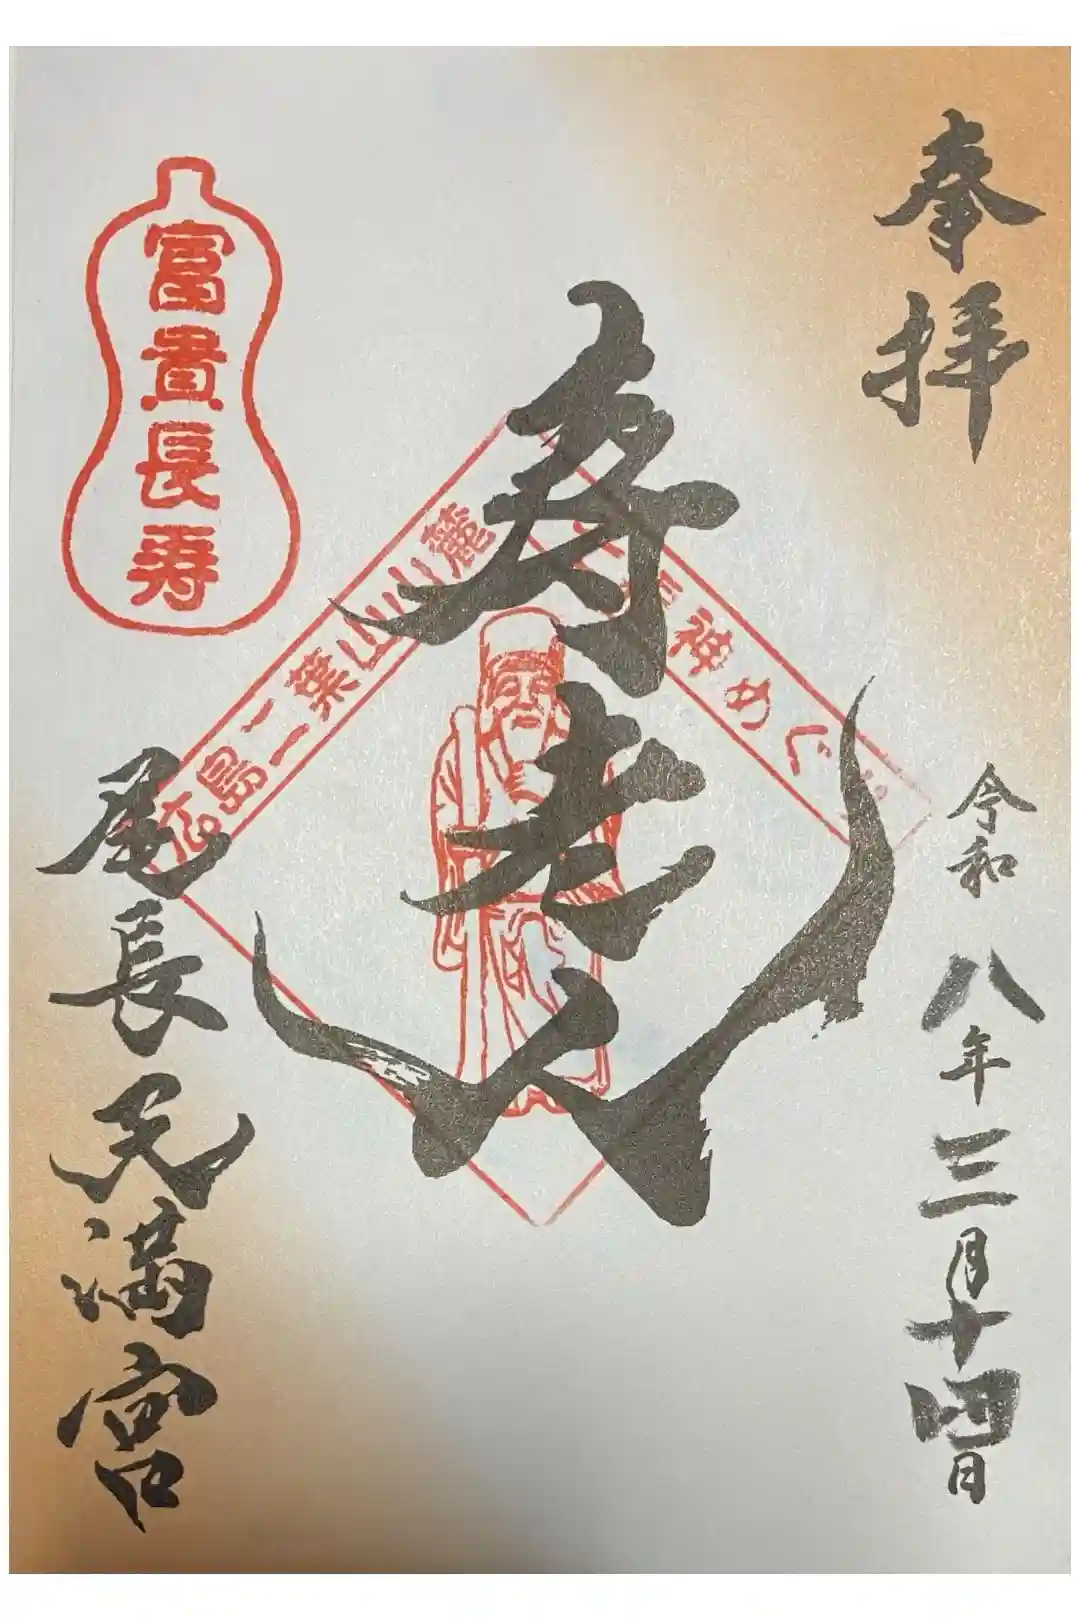 奉拝
令和八年三月十四日
寿老人
広島二葉山山麓
神めぐ
富貴長寿
尾長天満宮